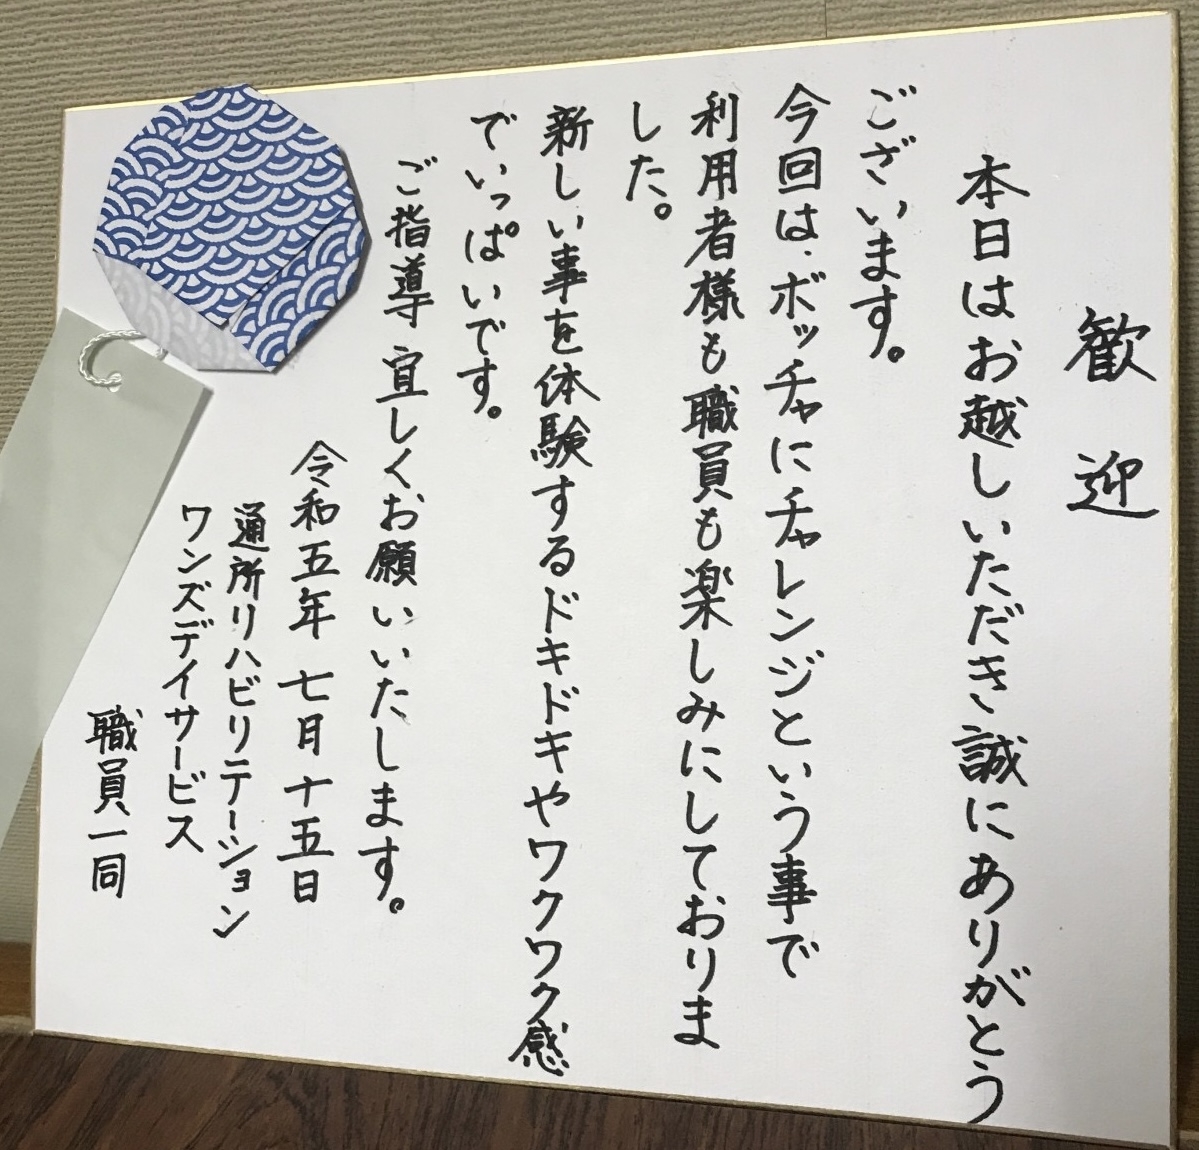 歓迎
本日はお越しいただき誠にありがとう
ございます。
今回は、ボッチャにチャレンジという事で
利用者様も職員も楽しみにしておりま
した。
新しい事を体験するドキドキやワクワク感
でいっぱいです。
ご指導宜しくお願いいたします。
令和五年七月十五日
通所リハビリテーション
ワンズデイサービス
職員一同